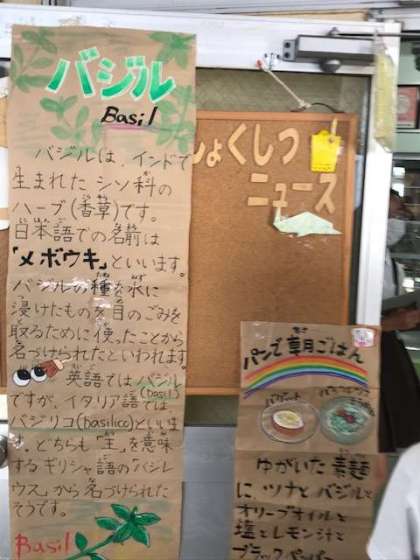 バジル
Basil
バジルは、インドで
生まれたシソ科の
ハーブ(香草)です。
日本語での名前は
「メボウキ」といいます。
バジルの種を水に
浸けたものを目のごみを
取るために使ったことから
名づけられたといわれます。
英語ではバジル
(basil)
ですが、イタリア語では
バジリコ(basilico)といいま
どちらも「王」を意味
するギリシャ語の「バジレ
ウス」から名づけられた
そうです。
Basil
しょくしつ
ニュース
パンで朝ごはん
バゲット
ゆがいた素麺
に、ツナとバジルと
オリーブオイルと
塩とレモン汁と
ブラックペッパー